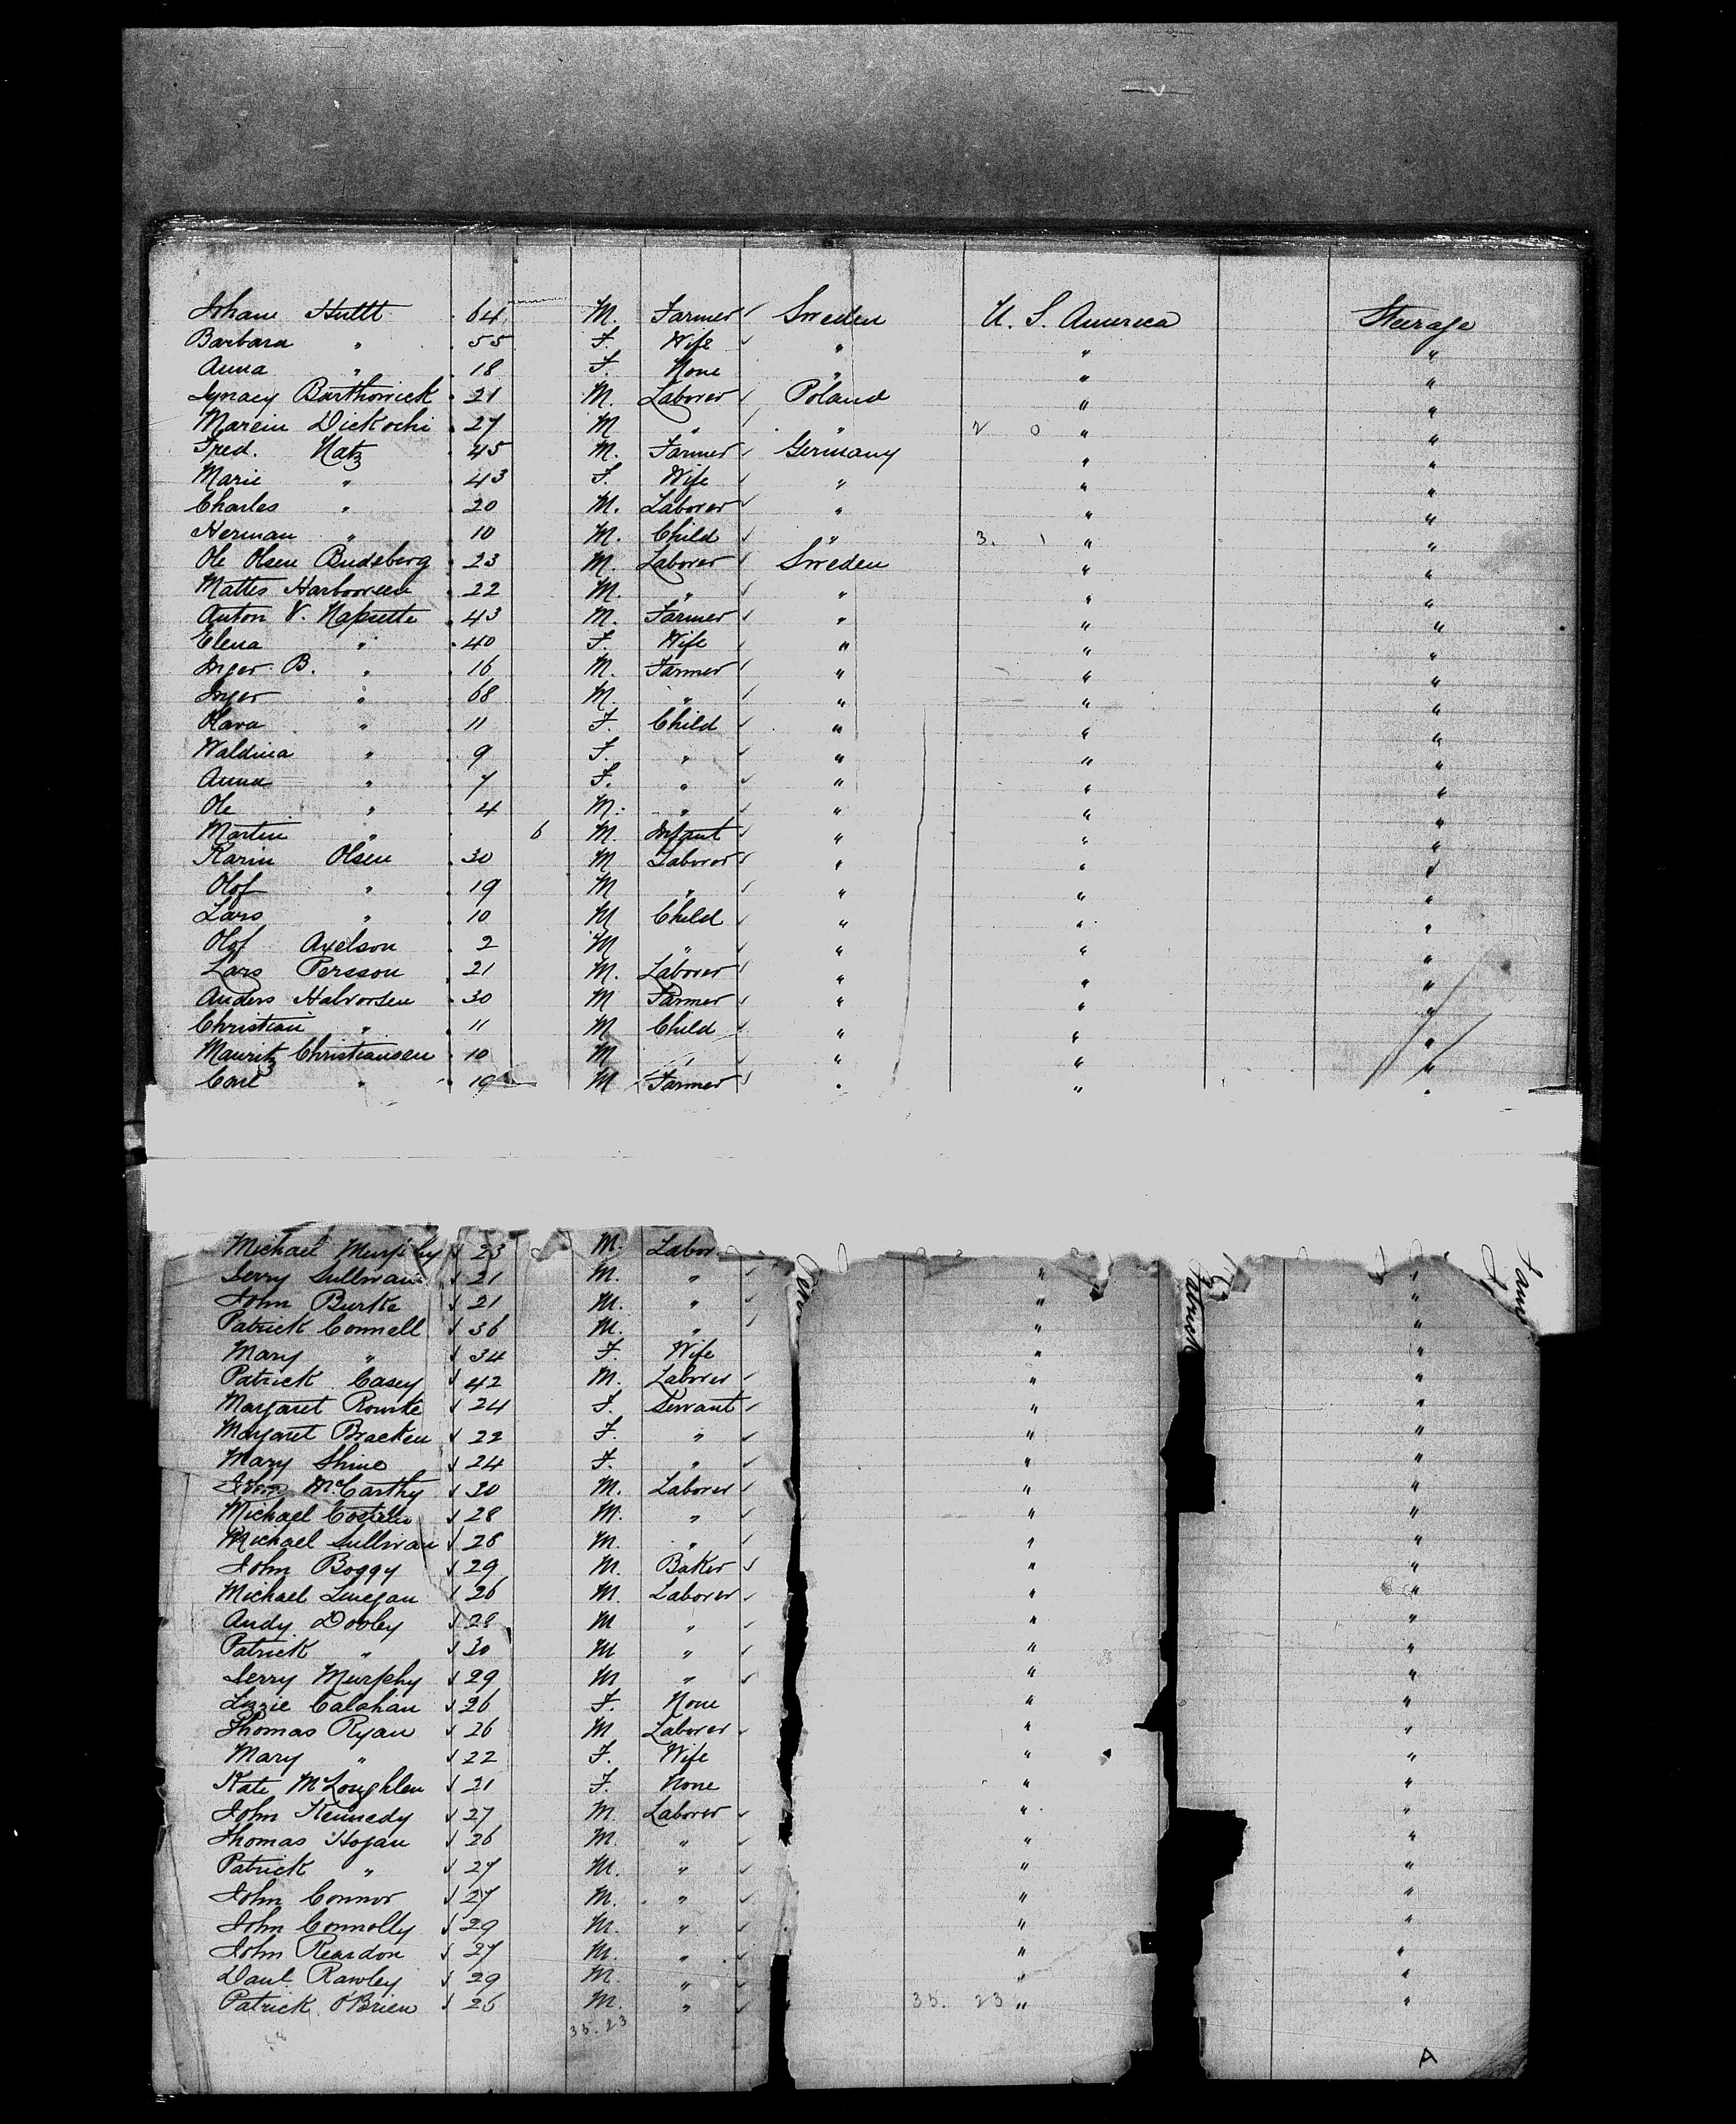 Johane Hultt 64 M. Farmer ✓ Sweden U. S. America Steerage
Barbara " 55 F. Wife ✓ " " "
Anna " 18 F. None " " "
Ignacy Barthowick 21 M. Laborer ✓ Poland " "
Marcin Dickochi 27 M " ✓ " 2 0 " "
Fred. Natz 45 M. Farmer ✓ Germany " "
Marie " 43 F. Wife ✓ " " "
Charles " 20 M. Laborer ✓ " " "
Herman " 10 M. Child ✓ " 3. 1 " "
Ole Olsen Budsberg 23 M. Laborer ✓ Sweden " "
Mattes 22 M. " ✓ " " "
Anton V. Napsette 43 M. Farmer ✓ " " "
Elena " 40 F. Wife ✓ " " "
Inger B. " 16 M. Farmer ✓ " " "
Inger " 68 M. " ✓ " " "
Olava " 11 F. Child ✓ " " "
Waldina " 9 F. " ✓ " " "
Anna " 7 F. " ✓ " " "
Ole " 4 M. " ✓ " " "
Martin " 6 M. Infant ✓ " " "
Karin Olsen 30 M Laborer ✓ " " "
Olof " 19 M " ✓ " " "
Lars " 10 M Child ✓ " " "
Olof Axelson 2 M " ✓ " " "
Lars Persson 21 M. Laborer ✓ " " "
Anders Halvorsen 30 M Farmer ✓ " " "
Christian " 11 M Child ✓ " " "
Mauritz Christiansen 10 M " ✓ " " "
Carl " 19 M Farmer ✓ " " "
Michael Murphy ✓ 23 M. Labor
Jerry Sullivan ✓ 21 M. " ✓ " "
John Burke ✓ 21 M. " ✓ " "
Patrick Connell ✓ 36 M. " ✓ " "
Mary " ✓ 34 F. Wife " "
Patrick Casey ✓ 42 M. Laborer ✓ " "
Margaret Rourke ✓ 24 F. Servant ✓ " "
Margaret Bracken ✓ 22 F. " ✓ " "
Mary Shine ✓ 24 F. " ✓ " "
John McCarthy ✓ 30 M. Laborer ✓ " "
Michael Costello ✓ 28 M. " ✓ " "
Michael Sullivan ✓ 28 M. " ✓ " "
John Boggy ✓ 29 M. Baker ✓ " "
Michael Linegan ✓ 26 M. Laborer ✓ " "
Andy Dooley ✓ 28 M " ✓ " "
Patrick " ✓ 30 M " ✓ " "
Jerry Murphy ✓ 29 M " ✓ " "
Lizzie Calahan ✓ 26 F. None " "
Thomas Ryan ✓ 26 M Laborer ✓ " "
Mary " ✓ 22 F. Wife " "
Kate McLoughlen ✓ 21 F. None " "
John Kennedy ✓ 27 M. Laborer ✓ " "
Thomas Hogan ✓ 26 M. " ✓ " "
Patrick " ✓ 27 M. " ✓ " "
John Connor ✓ 27 M. " ✓ " "
John Connolly ✓ 29 M. " ✓ " "
John Reardon ✓ 27 M. " ✓ " "
Danl. Rawley ✓ 29 M. " ✓ " "
Patrick O'Brien ✓ 26 M. " ✓ 35. 23 " "
35. 23
A